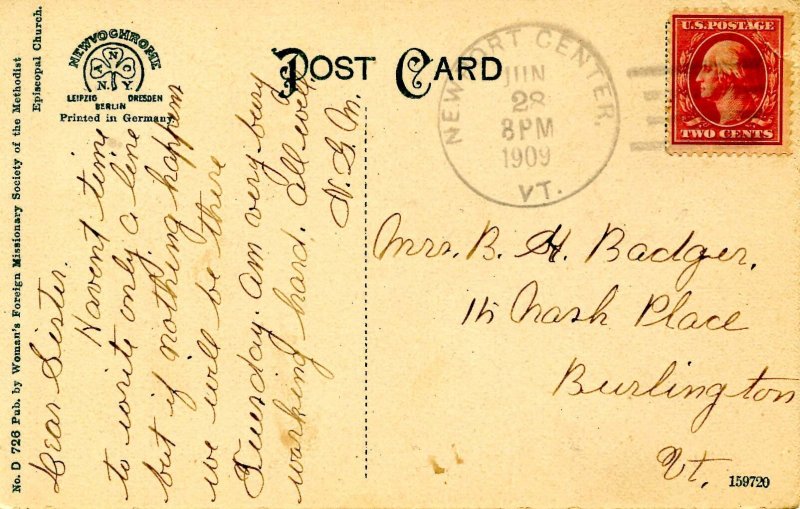 No. D 726 Pub. by Woman's Foreign Missionary Society of the Methodist
Episcopal Church.
NEWVOCHROME
A N C O
N.Y.
LEIPZIG DRESDEN
BERLIN
Printed in Germany
POST CARD
NEWPORT CENTER,
JUN
28
8 PM
1909
VT.
U.S. POSTAGE
TWO CENTS
Dear Sister.
Havent time
to write only a line
but if nothing happen
we will be there
Tuesday. am very busy
working hard. all well
N. G. M.
Mrs. B. H. Badger.
Nash Place
Burlington
Vt.
159720